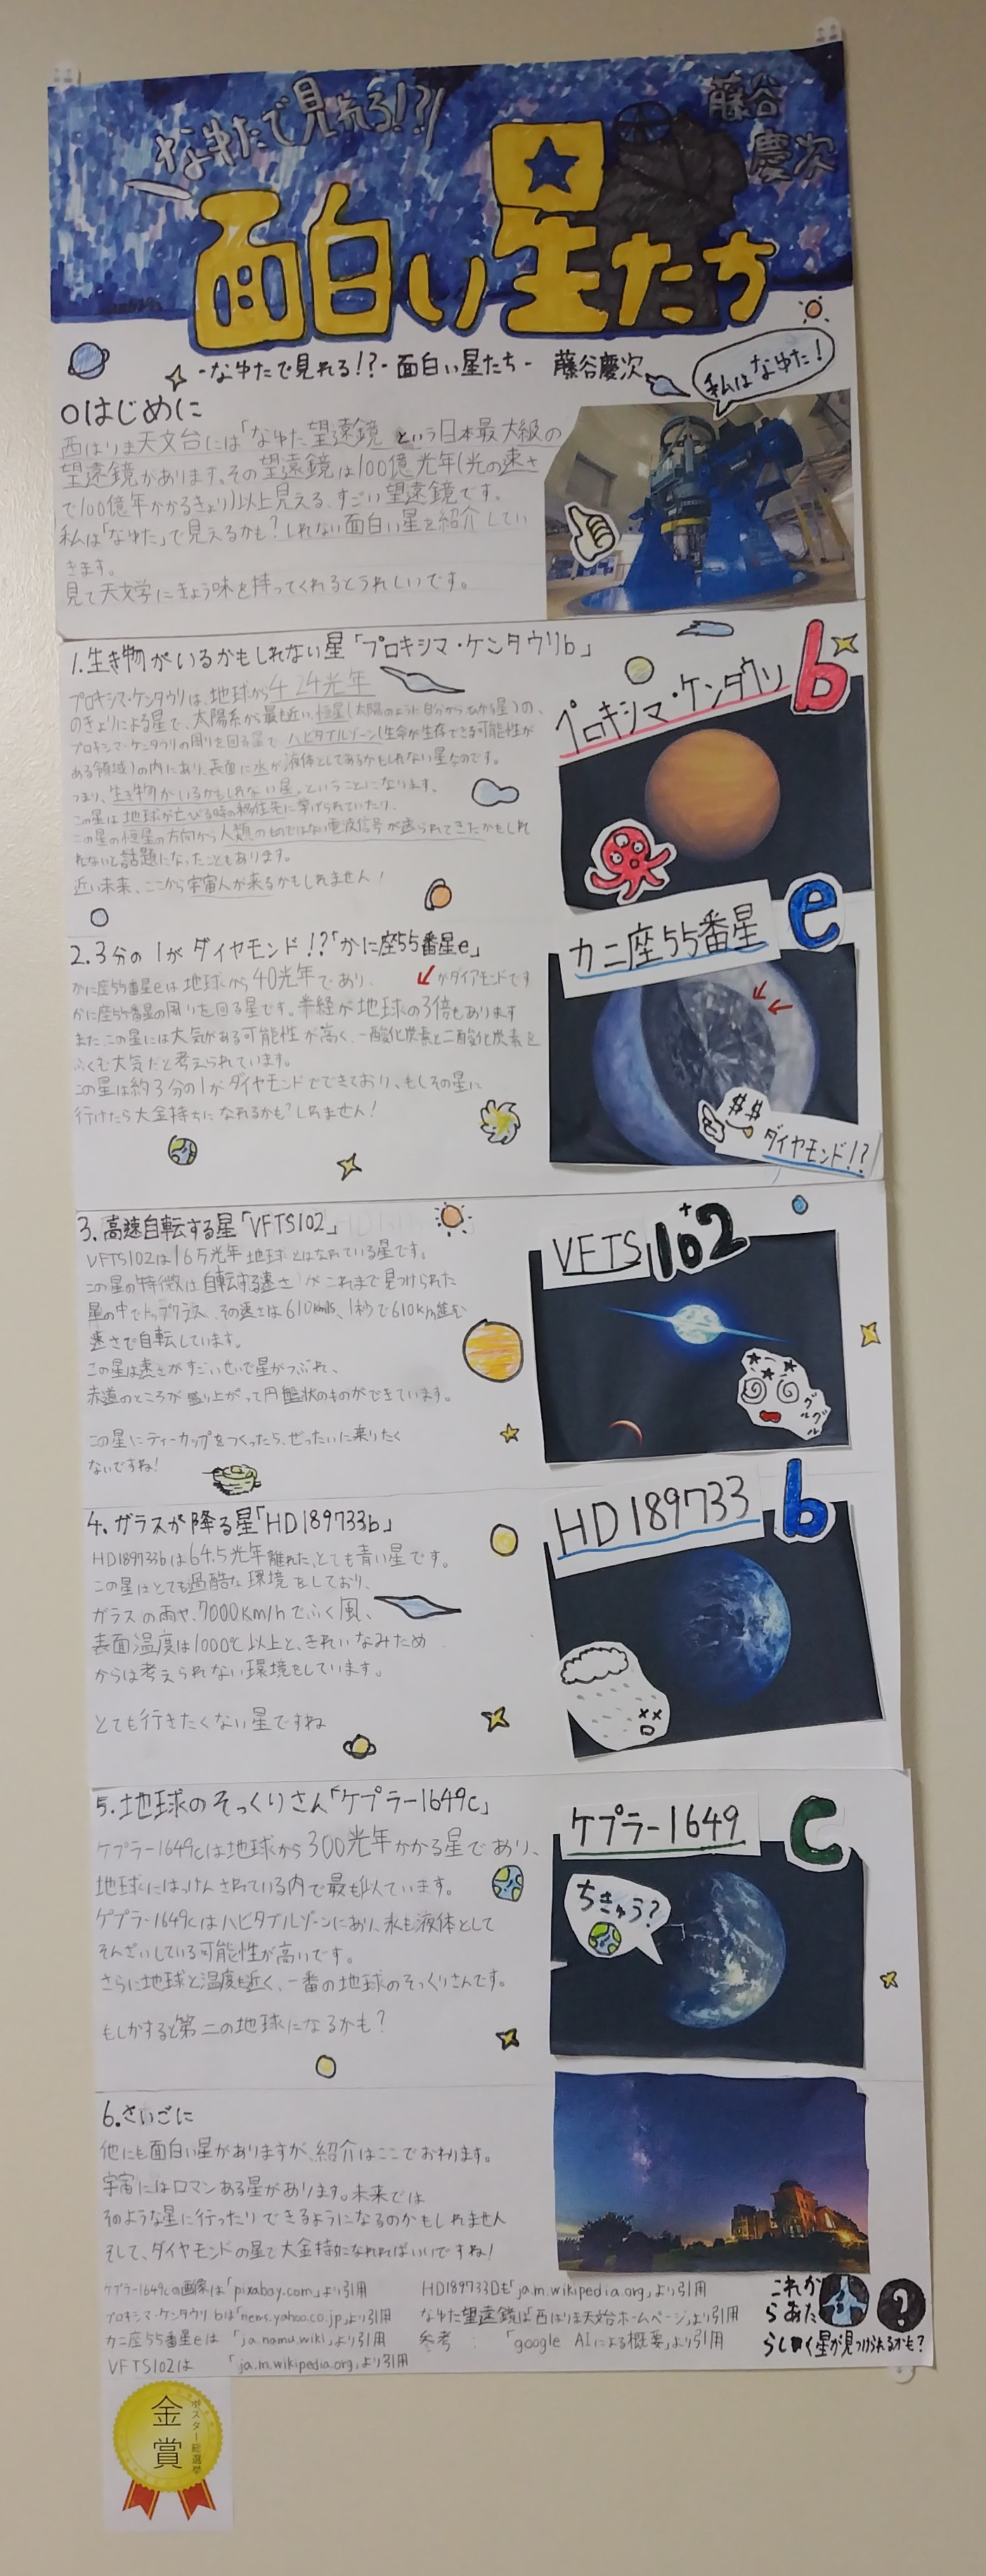 なゆたで見れる!?
藤谷
慶次
面白い星たち
-なゆたで見れる!?-面白い星たち- 藤谷慶次
私はなゆた!
○はじめに
西はりま天文台には「なゆた望遠鏡」という日本最大級の
望遠鏡があります。その望遠鏡は100億光年(光の速さ
で100億年かかるきょり)以上見える、すごい望遠鏡です。
私は「なゆた」で見えるかも?しれない面白い星を紹介してい
きます。
見て天文学にきょう味を持ってくれるとうれしいです。
1.生き物がいるかもしれない星「プロキシマ・ケンタウリb」
プロキシマ・ケンタウリは、地球から4.24光年
のきょりによる星で、太陽系から最も近い、恒星(太陽のように自分からひかる星)の、
プロキシマ・ケンタウリの周りを回る星で ハビタブルゾーン(生命が生存できる可能性が
ある領域)の内にあり、表面に水が液体としてあるかもしれない星なのです。
つまり、生き物がいるかもしれない星、ということになります。
この星は地球が亡びる時の移住先に挙げられていたり、
この星の恒星の方向から人類のものではない電波信号が送られてきたかもしれ
れないと話題になったこともあります。
近い未来、ここから宇宙人が来るかもしれません!
プロキシマ・ケンタウリb
2.3分の1がダイヤモンド!?「かに座55番星e」
かに座55番星eは地球から40光年であり、
がダイアモンドです
かに座55番星の周りを回る星です。半経が地球の3倍もあります
また、この星には大気がある可能性が高く、一酸化炭素と二酸化炭素を
ふくむ大気だと考えられています。
この星は約3分の1がダイヤモンドでできており、もしその星に
行けたら大金持ちになれるかも?しれません!
カニ座55番星e
$$
ダイヤモンド!?
3.高速自転する星「VFTS102」
VFTS102は16万光年地球とはなれている星です。
この星の特徴は自転する速さ)がこれまで見つけられた
星の中でトップクラス、その速さは610km/s、1秒で610km進む
速さで自転しています。
この星は速さがすごいせいで星がつぶれ、
赤道のところが盛り上がって円盤状のものができています。
この星にティーカップをつくったら、ぜったいに乗りたく
ないですね!
VFTS102
グルグル
4.ガラスが降る星「HD189733b」
HD189733bは64.5光年離れた、とても青い星です。
この星はとても過酷な環境をしており、
ガラスの雨や、7000km/hでふく風、
表面温度は1000℃以上と、きれいなみため
からは考えられない環境をしています。
とても行きたくない星ですね
HD189733b
5.地球のそっくりさん「ケプラー1649c」
ケプラー1649cは地球から300光年かかる星であり、
地球にはっけんされている内で最も似ています。
ケプラー1649cはハビタブルゾーンにあり、水も液体として
そんざいしている可能性が高いです。
さらに地球と温度も近く、一番の地球のそっくりさんです。
もしかすると第二の地球になるかも?
ケプラー1649c
ちきゅう?
6.さいごに
他にも面白い星がありますが、紹介はここでおわります。
宇宙にはロマンある星があります。未来では
そのような星に行ったりできるようになるのかもしれません
そして、ダイヤモンドの星で大金持になれればいいですね!
ケプラー1649cの画像は「pixabay.com」より引用
プロキシマ・ケンタウリbは「news.yahoo.co.jp」より引用
カニ座55番星eは 「ja.namu.wiki」より引用
VFTS102は 「ja.m.wikipedia.org」より引用
HD189733bも「ja.m.wikipedia.org」より引用
なゆた望遠鏡は「西はりま天文台ホームページ」より引用
参考 : 「google AIによる概要」より引用
これか
らあた
らしく星が見つけられるかも?
?
ポスター総選挙
金賞